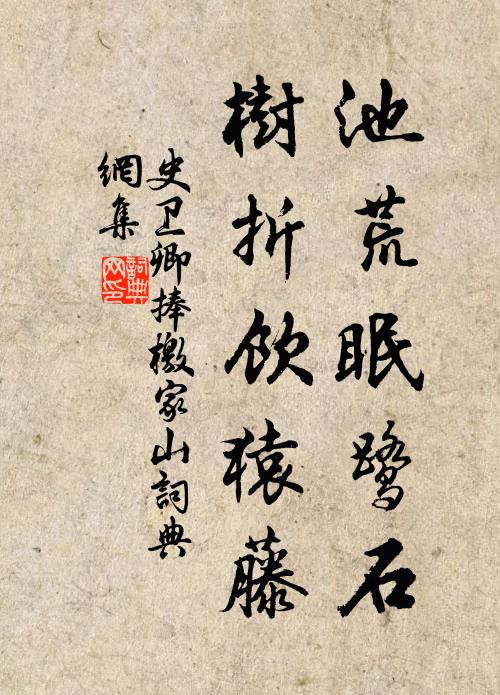 池荒眠鹭石
樹折飲猿藤
史卫卿捧檄家山詞典
網集
詞典
网印